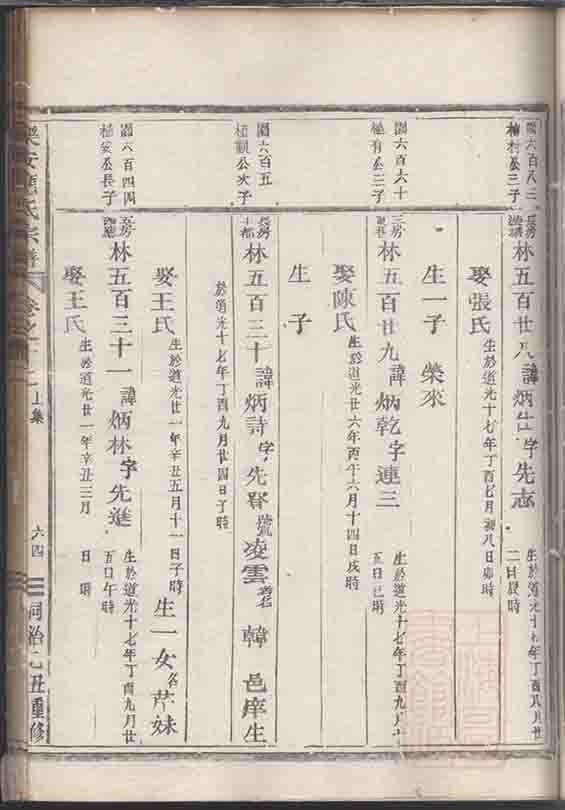 園六百八三
公三子
長房
林五百廿八 諱炳 字先志
生於道光十七年丁酉八月廿
二日辰時
娶張氏
生於道光十七年丁酉七月初八日卯時
生一子 榮來
園六百六十
公三子
三房
林五百廿九 諱炳乾字連三
生於道光十七年丁酉九月十
五日巳時
娶陳氏
生於道光廿六年丙午六月十四日戌時
生 子
園六百五
觀公次子
長房
林五百三十 諱炳詩字先 號凌雲 名 韓 邑庠生
於道光十七年丁酉九月廿四日子時
娶王氏
生於道光廿一年辛丑五月十一日子時
生一女名芹妹
園六百四四
安公長子
林五百三十一 諱炳林字先進
生於道光十七年丁酉九月廿
五日午時
娶王氏
生於道光廿一年辛丑三月 日 時
樂安 氏宗譜
卷之
上集
六四
同治乙丑重修